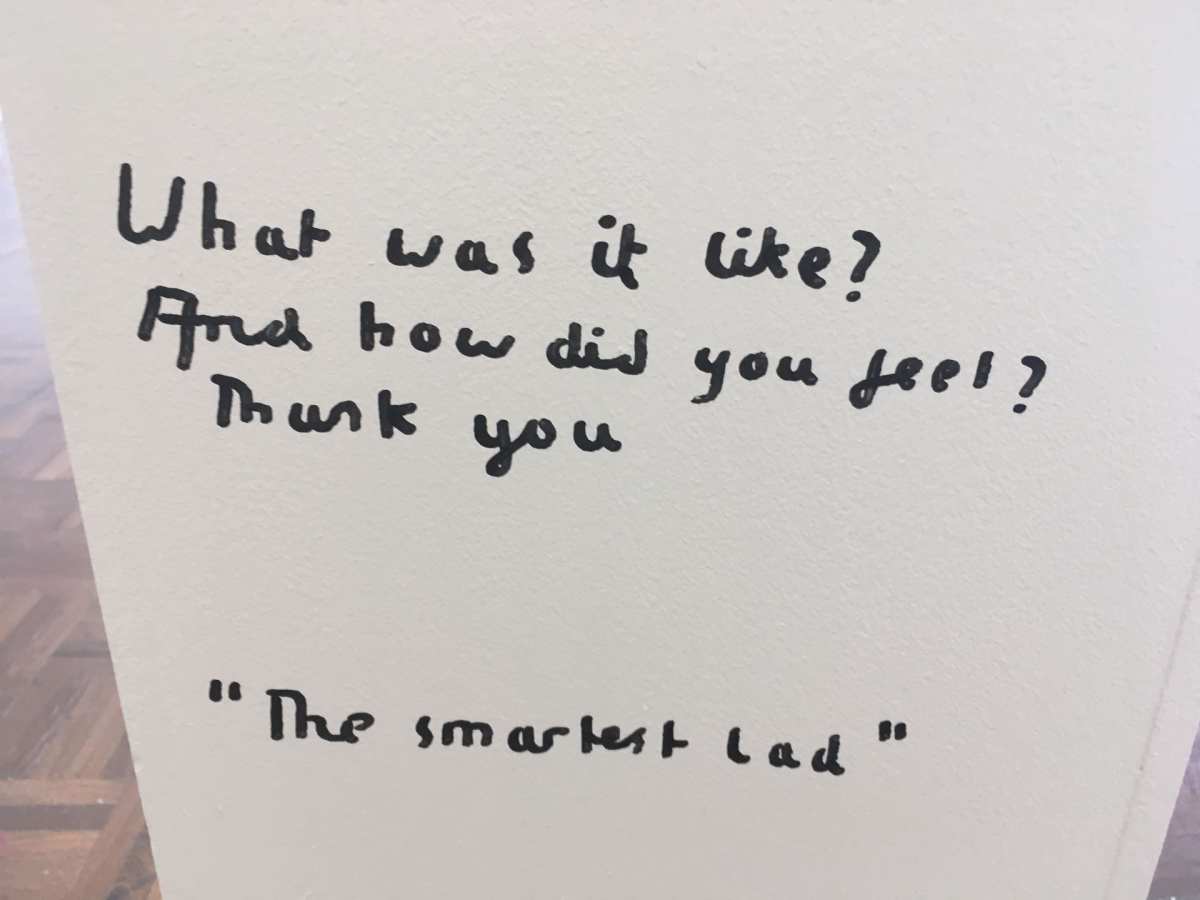 What was it like?
And how did you feel?
Thank you
"The smartest lad"